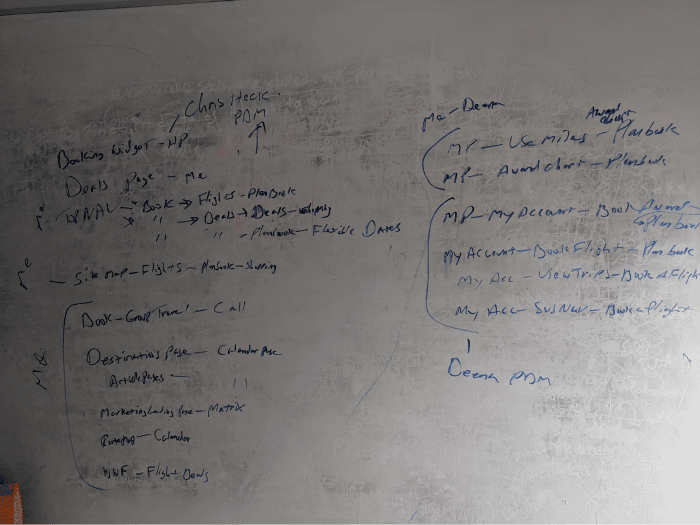 Chris Heck
PDM
Booking Widget - HP
Deals Page - Me
Book → Flights - Planbook
" → Deals → Deals -
" " - Planbook - Flexible Dates
- Site Map - Flights - Planbook - Shopping
Me
Book - Group Travel - Call
Destinations Page - Calendar Page
Article Pages - " "
Marketing Landing Page - Matrix
- Calendar
WWF - Flight Deals
Me - Deena
Award Chart
MP - Use Miles - Planbook
MP - Award Chart - Planbook
MP - My Account - Book Award
- Planbook
My Account - Book Flight - Planbook
My Acc - View Trips - Book a Flight
My Acc - SubNav - Book a Flight
Deena PDM